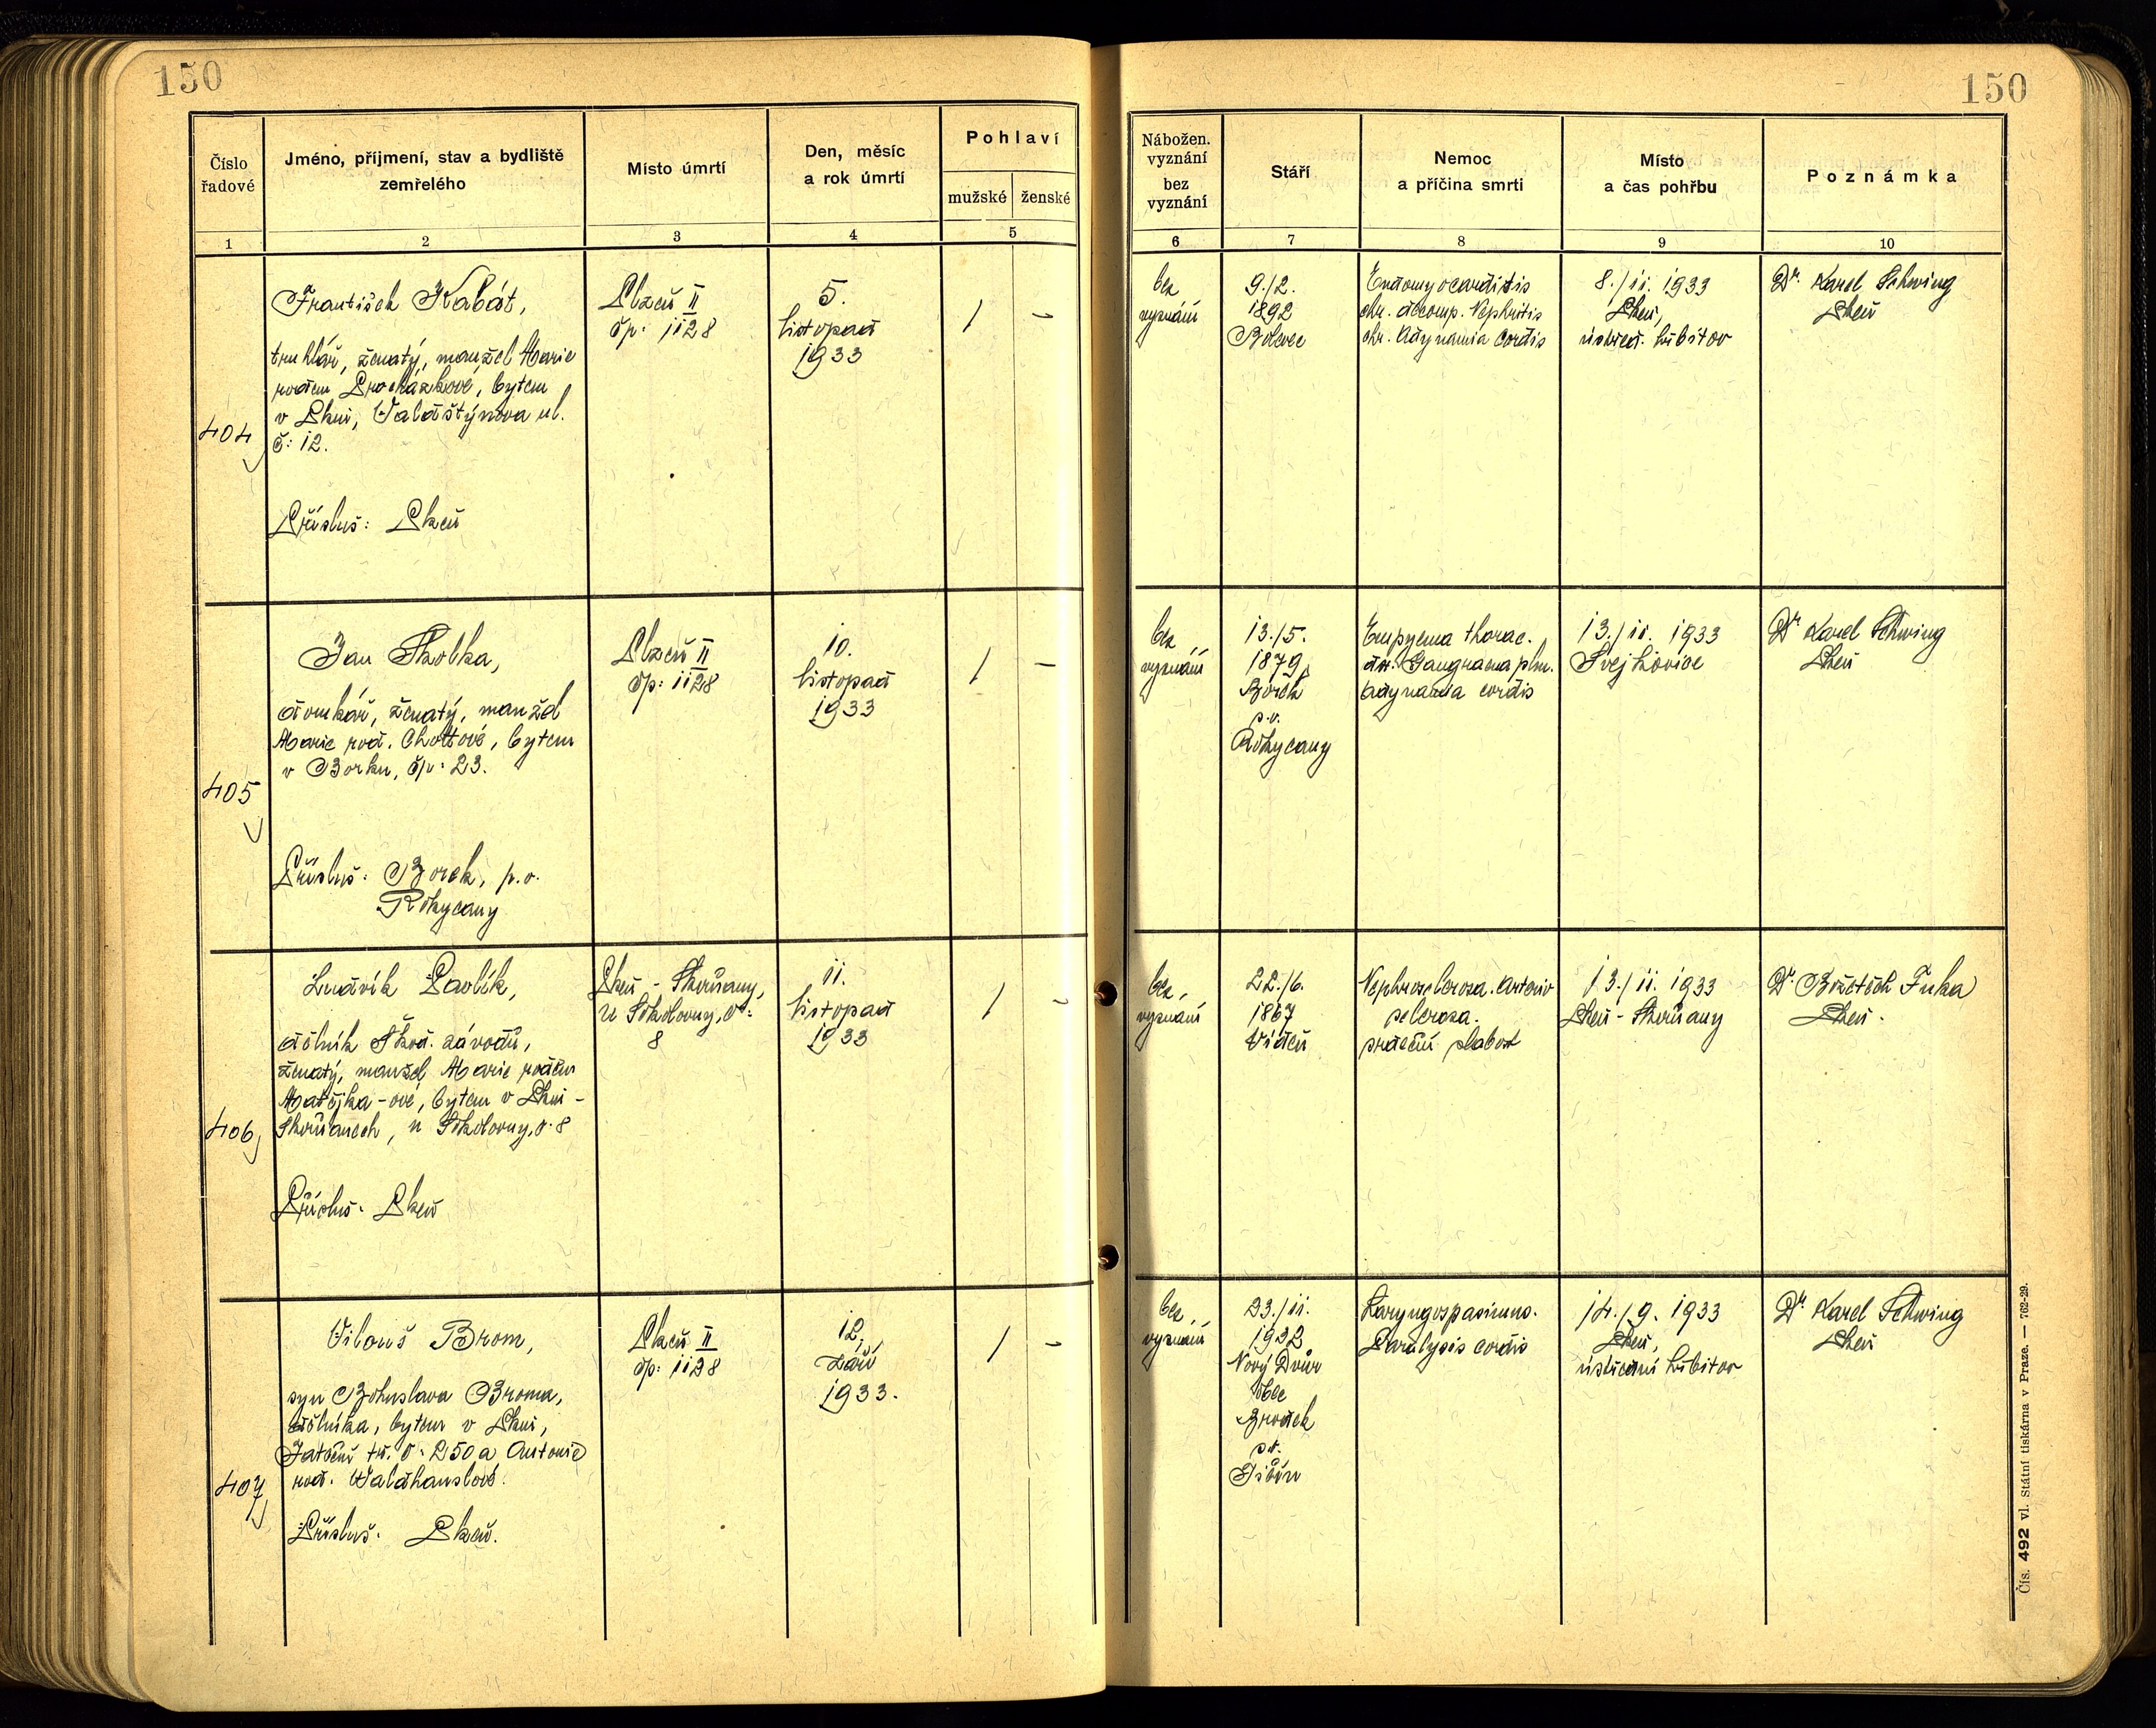 150
150
Číslo
řadové
Jméno, příjmení, stav a bydliště
zemřelého
Místo úmrtí
Den, měsíc
a rok úmrtí
Pohlaví
mužské
ženské
Nábožen.
vyznání
bez
vyznání
Stáří
Nemoc
a příčina smrti
Místo
a čas pohřbu
Poznámka
1
2
3
4
5
6
7
8
9
10
404
František Kabát,
truhlář, ženatý, manžel Marie
rodem Procházkové, bytem
v Plzni, Valdštýnova ul.
č: 12.
Přísluš: Plzeň
Plzeň II
čp: 1128
5.
listopad
1933
/
-
bez
vyznání
9./2.
1892
Bolevec
Endomyocarditis
chr. decomp. Nephritis
chr. Adynamia cordis
8./11. 1933
Plzeň,
ústřed. hřbitov
Dr. Karel Schwing
Plzeň
405
Jan Skolka,
domkář, ženatý, manžel
Marie rod. , bytem
v Borku, čp: 23.
Přísluš: Borek, p.o.
Rokycany
Plzeň II
čp: 1128
10.
listopad
1933
/
-
bez
vyznání
13./5.
1879,
Borek
p.o.
Rokycany
Empyema thorac.
Gangraena plm.
Adynamia cordis
13./11. 1933
Svejkovice
Dr Karel Schwing
Plzeň
406
Ludvík Pavlík,
dělník Škod. závodů,
ženatý, manžel Marie rodem
Matějka-ové, bytem v Plzni -
Skvrňanech, u Sokolovny, č. 8
Přísluš: Plzeň
Plzeň - Skvrňany,
u Sokolovny, č:
8
11.
listopad
1933
/
-
bez
vyznání
22./6.
1867
Vídeň
Nephrosclerosa. Arterio
sclerosa.
srdeční slabost
13./11. 1933
Plzeň - Skvrňany
Dr. Břetěch Fuka
Plzeň.
407
Miloš Brom,
syn Bohuslava Broma,
dělníka, bytem v Plzni,
Jateční tř. č: 250 a Antonie
rod.
Přísluš: Plzeň.
Plzeň II
čp: 1128
12.
září
1933.
/
-
bez
vyznání
23./11.
1932
Nový Dvůr
obec
Brodek
Jičín
Laryngospasmus.
Paralysis cordis
14./9. 1933
Plzeň,
ústřední hřbitov
Dr. Karel Schwing
Plzeň
Čís. 492 vl. Státní tiskárna v Praze. — 762-29.